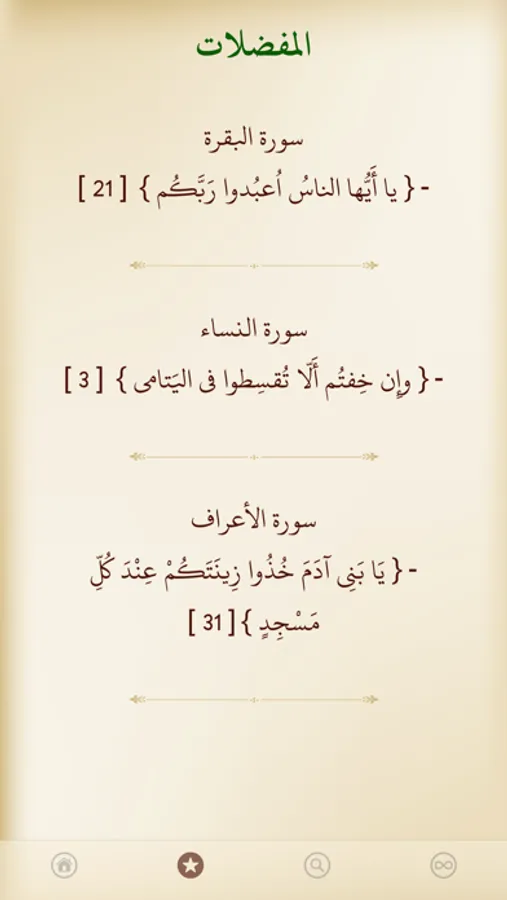 المفضلات
سورة البقرة
- { يا أَيُّها الناسُ اُعبُدوا رَبَّكُم } [ 21 ]
سورة النساء
- { وإِن خِفتُم أَلّا تُقسِطوا فى اليَتامى } [ 3 ]
سورة الأعراف
- { يَا بَنِى آدَمَ خُذُوا زِينَتَكُمْ عِنْدَ كُلِّ
مَسْجِدٍ } [ 31 ]